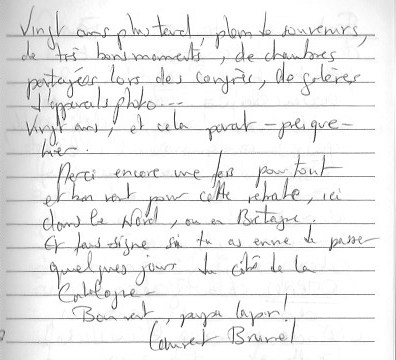 Vingt ans plus tard, plein de souvenirs,
de très bons moments, de chambres
partagées lors des congrès, de galères
d'appareils photo...
Vingt ans, et cela parait - presque -
hier.
Merci encore une fois pour tout
et bon vent pour cette retraite, ici
dans le Nord, ou en Bretagne.
Et fais signe si tu as envie de passer
quelques jours du côté de la
Catalogne
Bon vent, papa lapin!
Laurent Brunel